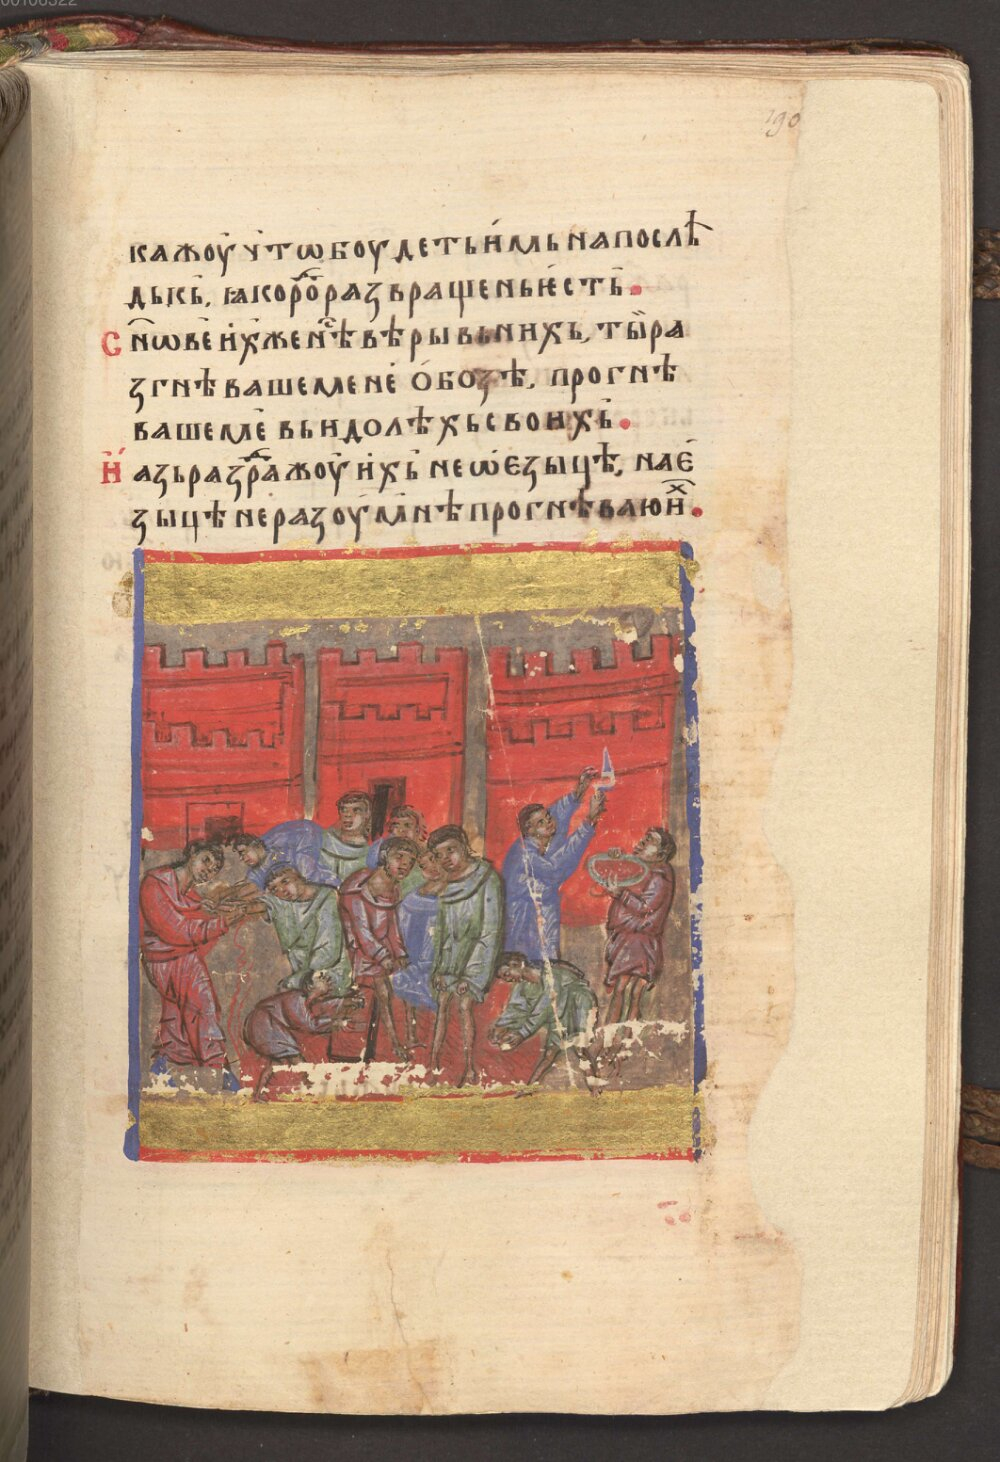 00106322
190
кажоу́ чтѡ боудеть и́мь напослѣ
дькь, ꙗко рѡ̑ разьвращень ѥ́сть.
Сн҃ѡве и́хже нѣ̑ вѣры вьнихь, ты̏ ра
згнѣваше ме не ѻ́ бозѣ, прогнѣ
ваше ме̏ вьидолѣхь своихь.
И́ азь раздра̑жоу́ и́хь не ѡ́ езыцѣ, на е́
зыцѣ неразоумнѣ прогнѣваю и̑х.